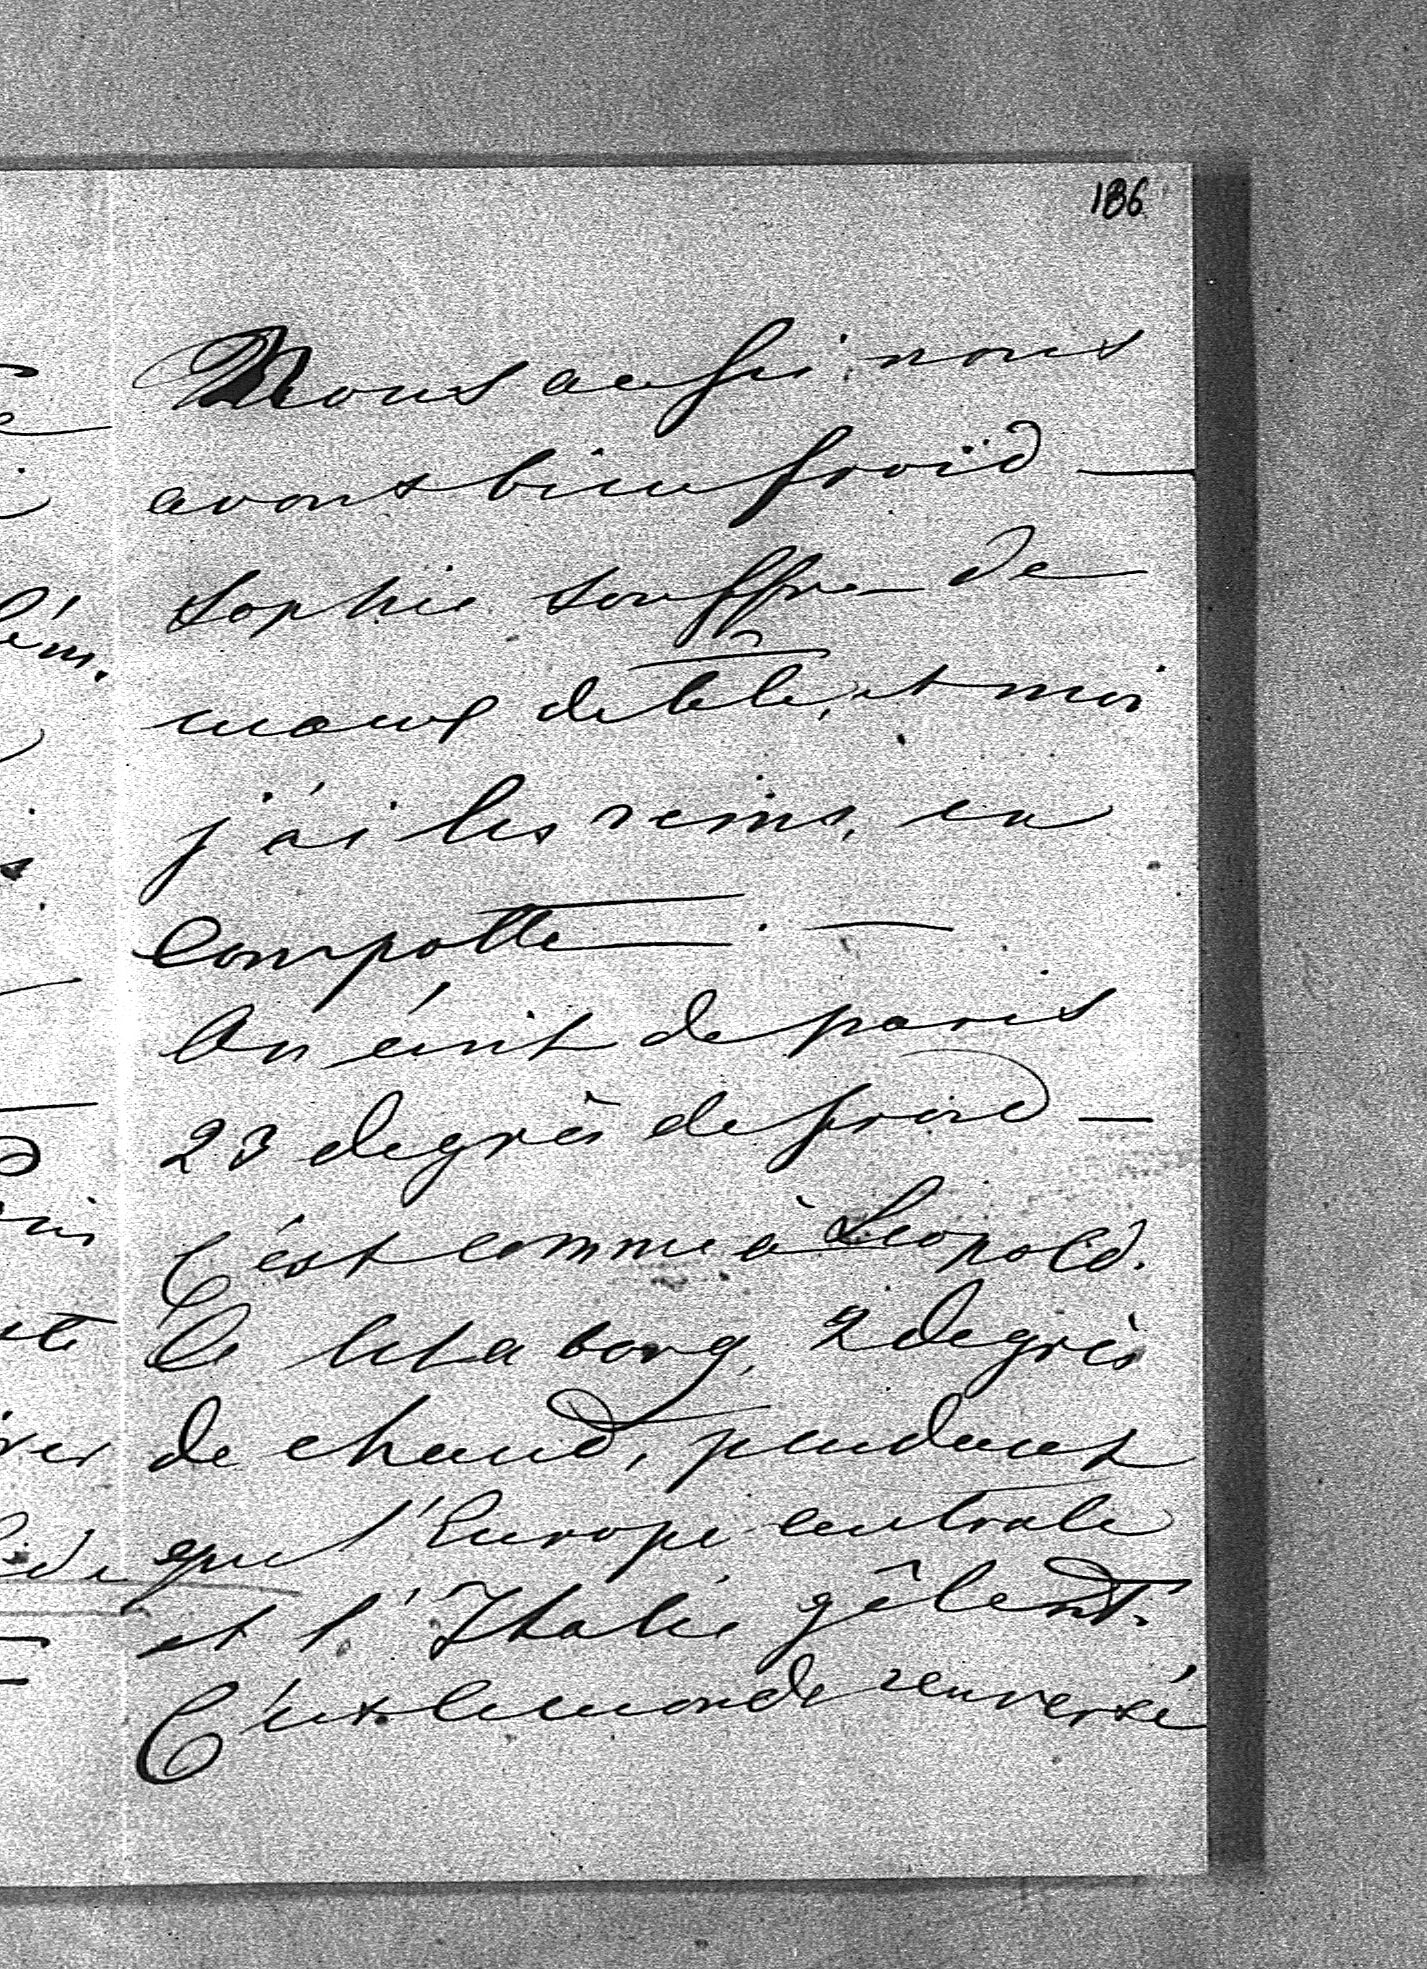 186
Nous aussi, nous
avons bien froid —
Sophie souffre de
maux de tête, et moi
j'ai les reins, en
compotte. —
On écrit de paris
23 degrès de froid —
C'est comme à Leopold.
Et 2 degrès
de chaud, pendant
que l'Europe centrale
et l'Italie gêlent.
C'est le monde renversé